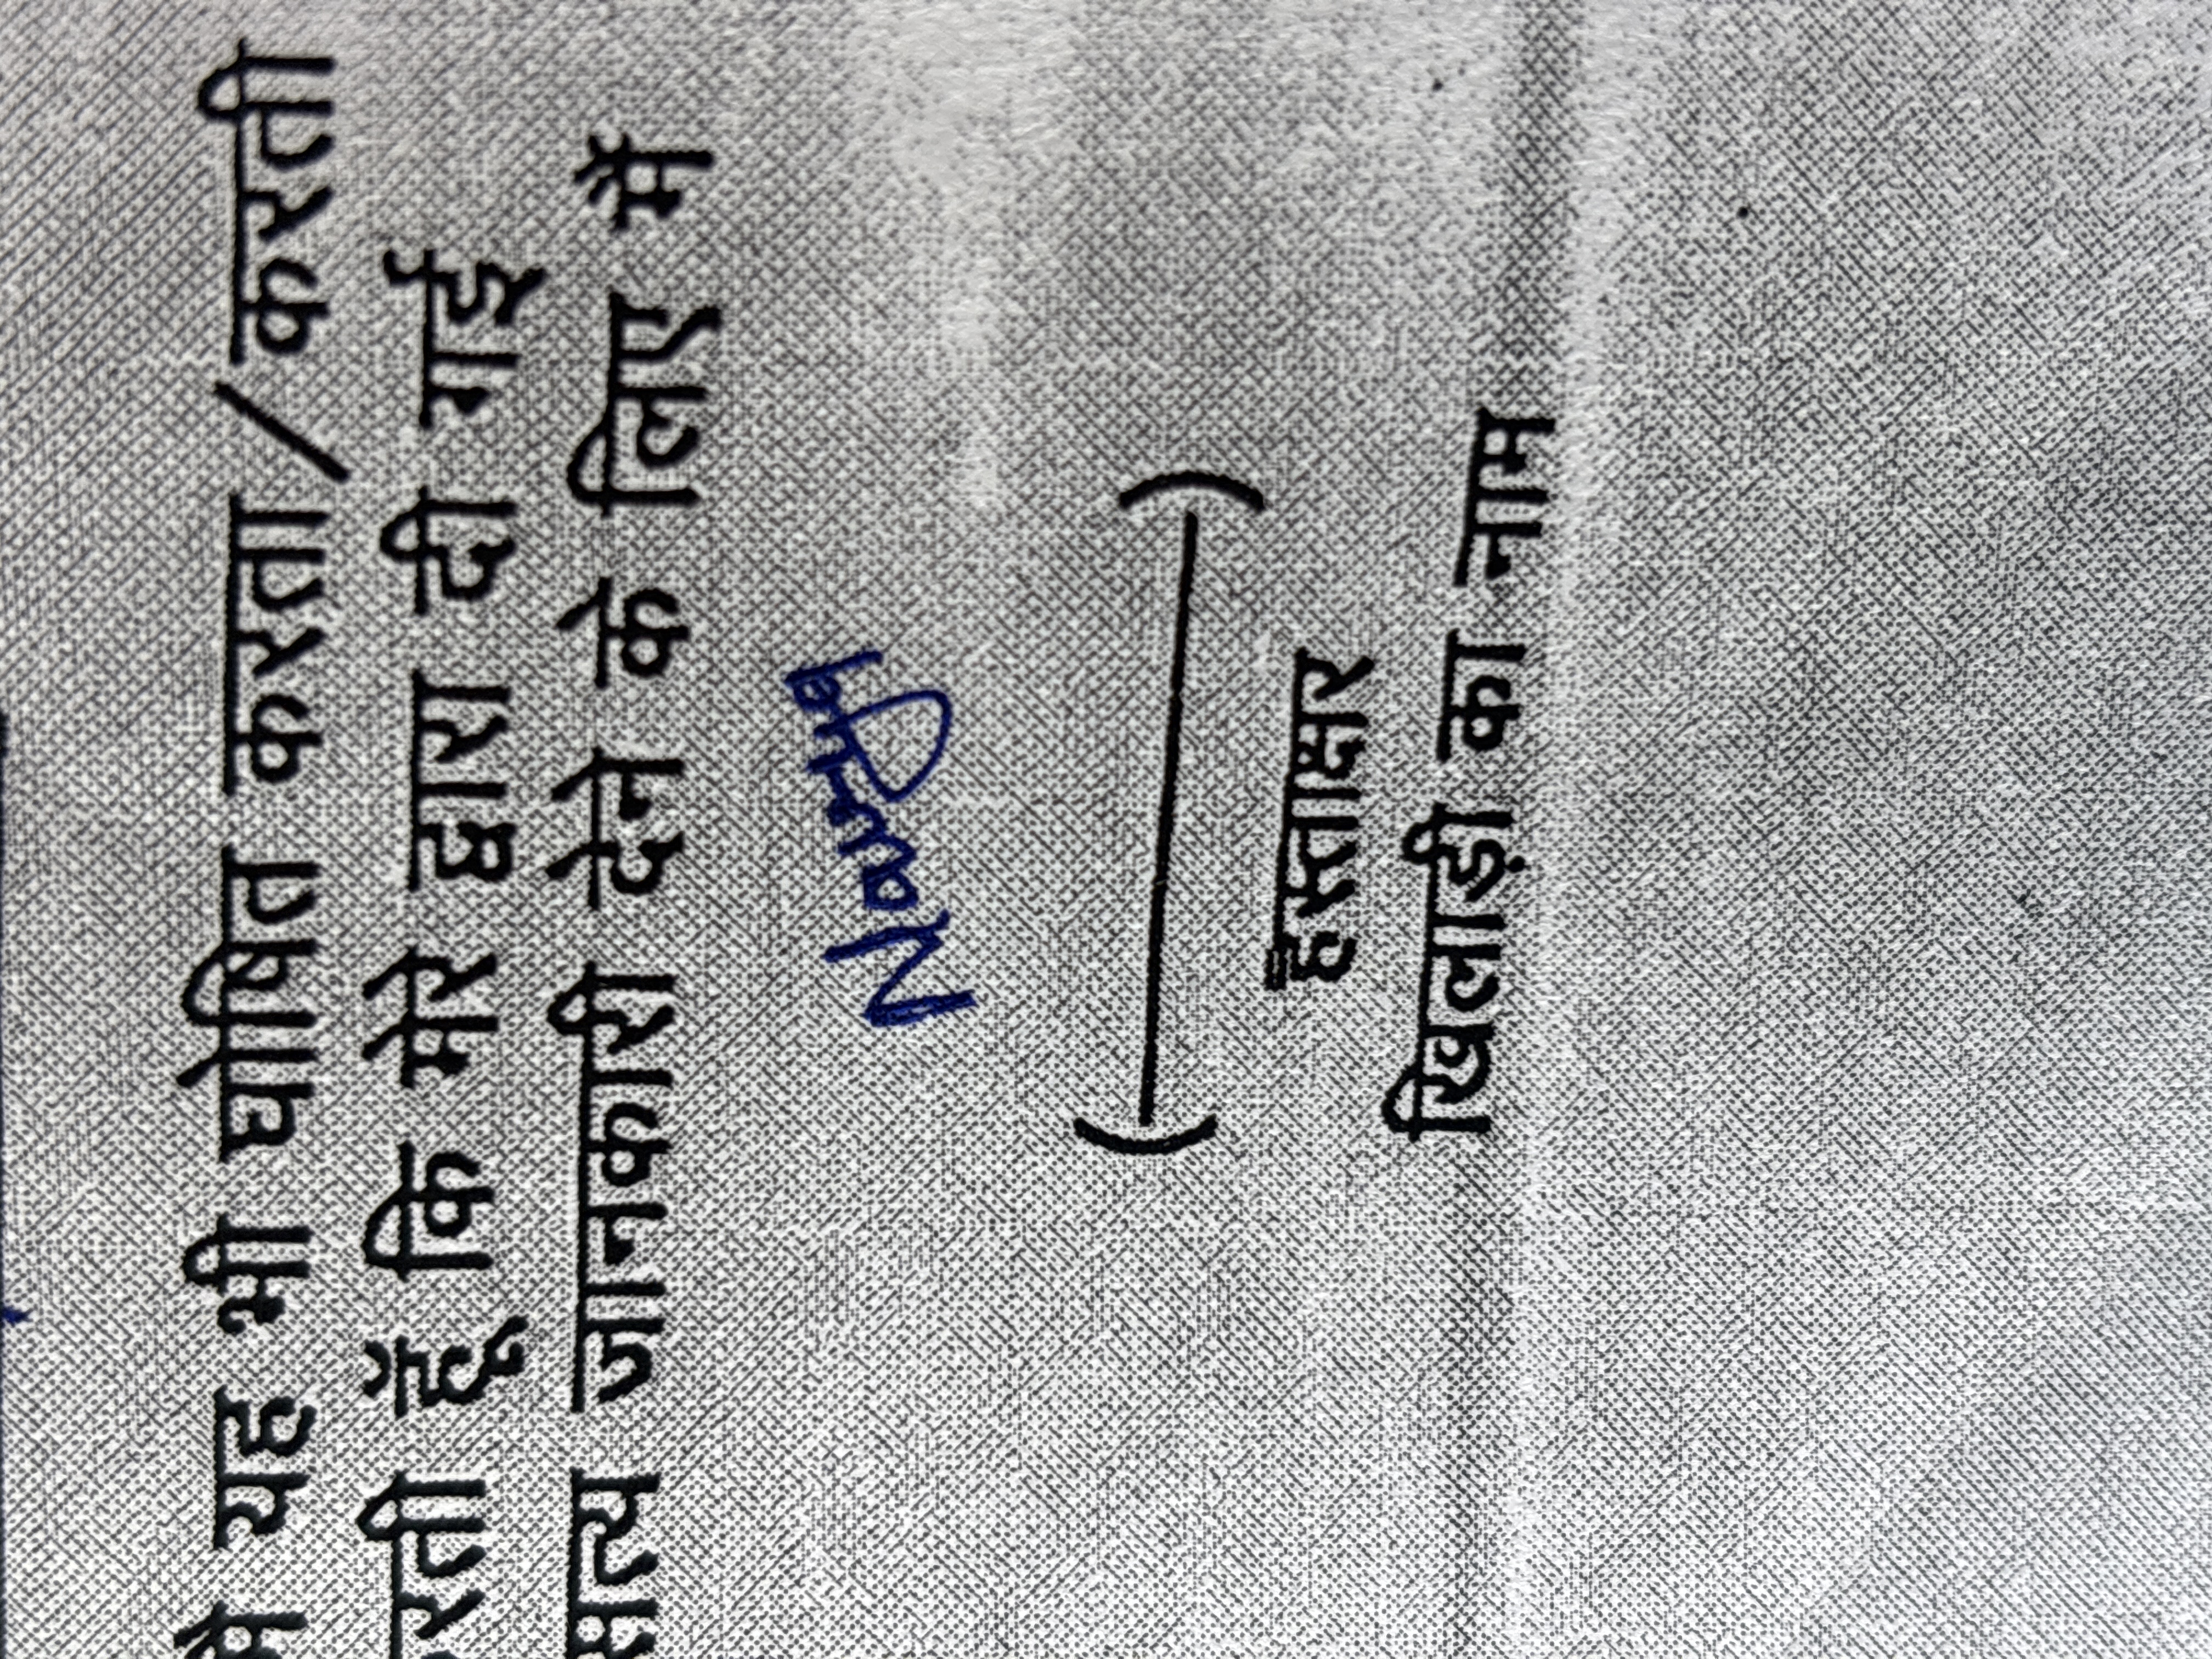 मैं यह भी घोषित करता / करती
रती हूँ कि मेरे द्वारा दी गई
सत्य जानकारी देने के लिए मैं
(________)
हस्ताक्षर
खिलाड़ी का नाम